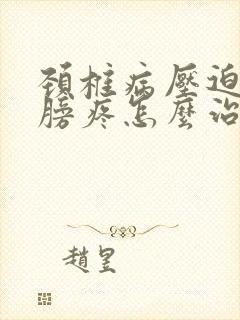 頚椎病壓迫
膀疼怎麼治
趙昱